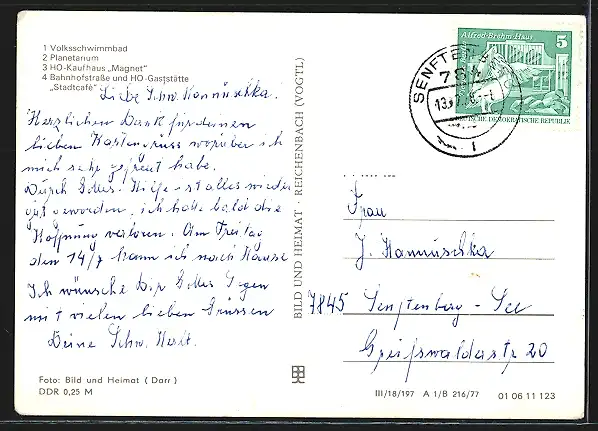 1 Volksschwimmbad
2 Planetarium
3 HO-Kaufhaus „Magnet"
4 Bahnhofstraße und HO-Gaststätte
„Stadtcafé"
Liebe Schw. Hannuschka.
Herzlichen Dank für deinen
lieben Kartengruss worüber ich
mich sehr gefreut habe.
Durch Gottes Hilfe ist alles wieder
gut geworden, ich hatte bald die
Hoffnung verloren. Am Freitag
den 14/7 kann ich nach Hause
Ich wünsche Dir Gottes Segen
mit vielen lieben Grüssen
Deine Schw. Herta.
Foto: Bild und Heimat (Darr)
DDR 0,25 M
BILD UND HEIMAT · REICHENBACH (VOGTL)
Alfred-Brehm-Haus
5
DEUTSCHE DEMOKRATISCHE REPUBLIK
SENFTENBERG
Frau
J. Hannuschka
7845 Senftenberg - See
Greifswalderstr 20
III/18/197 A 1/B 216/77 01 06 11 123